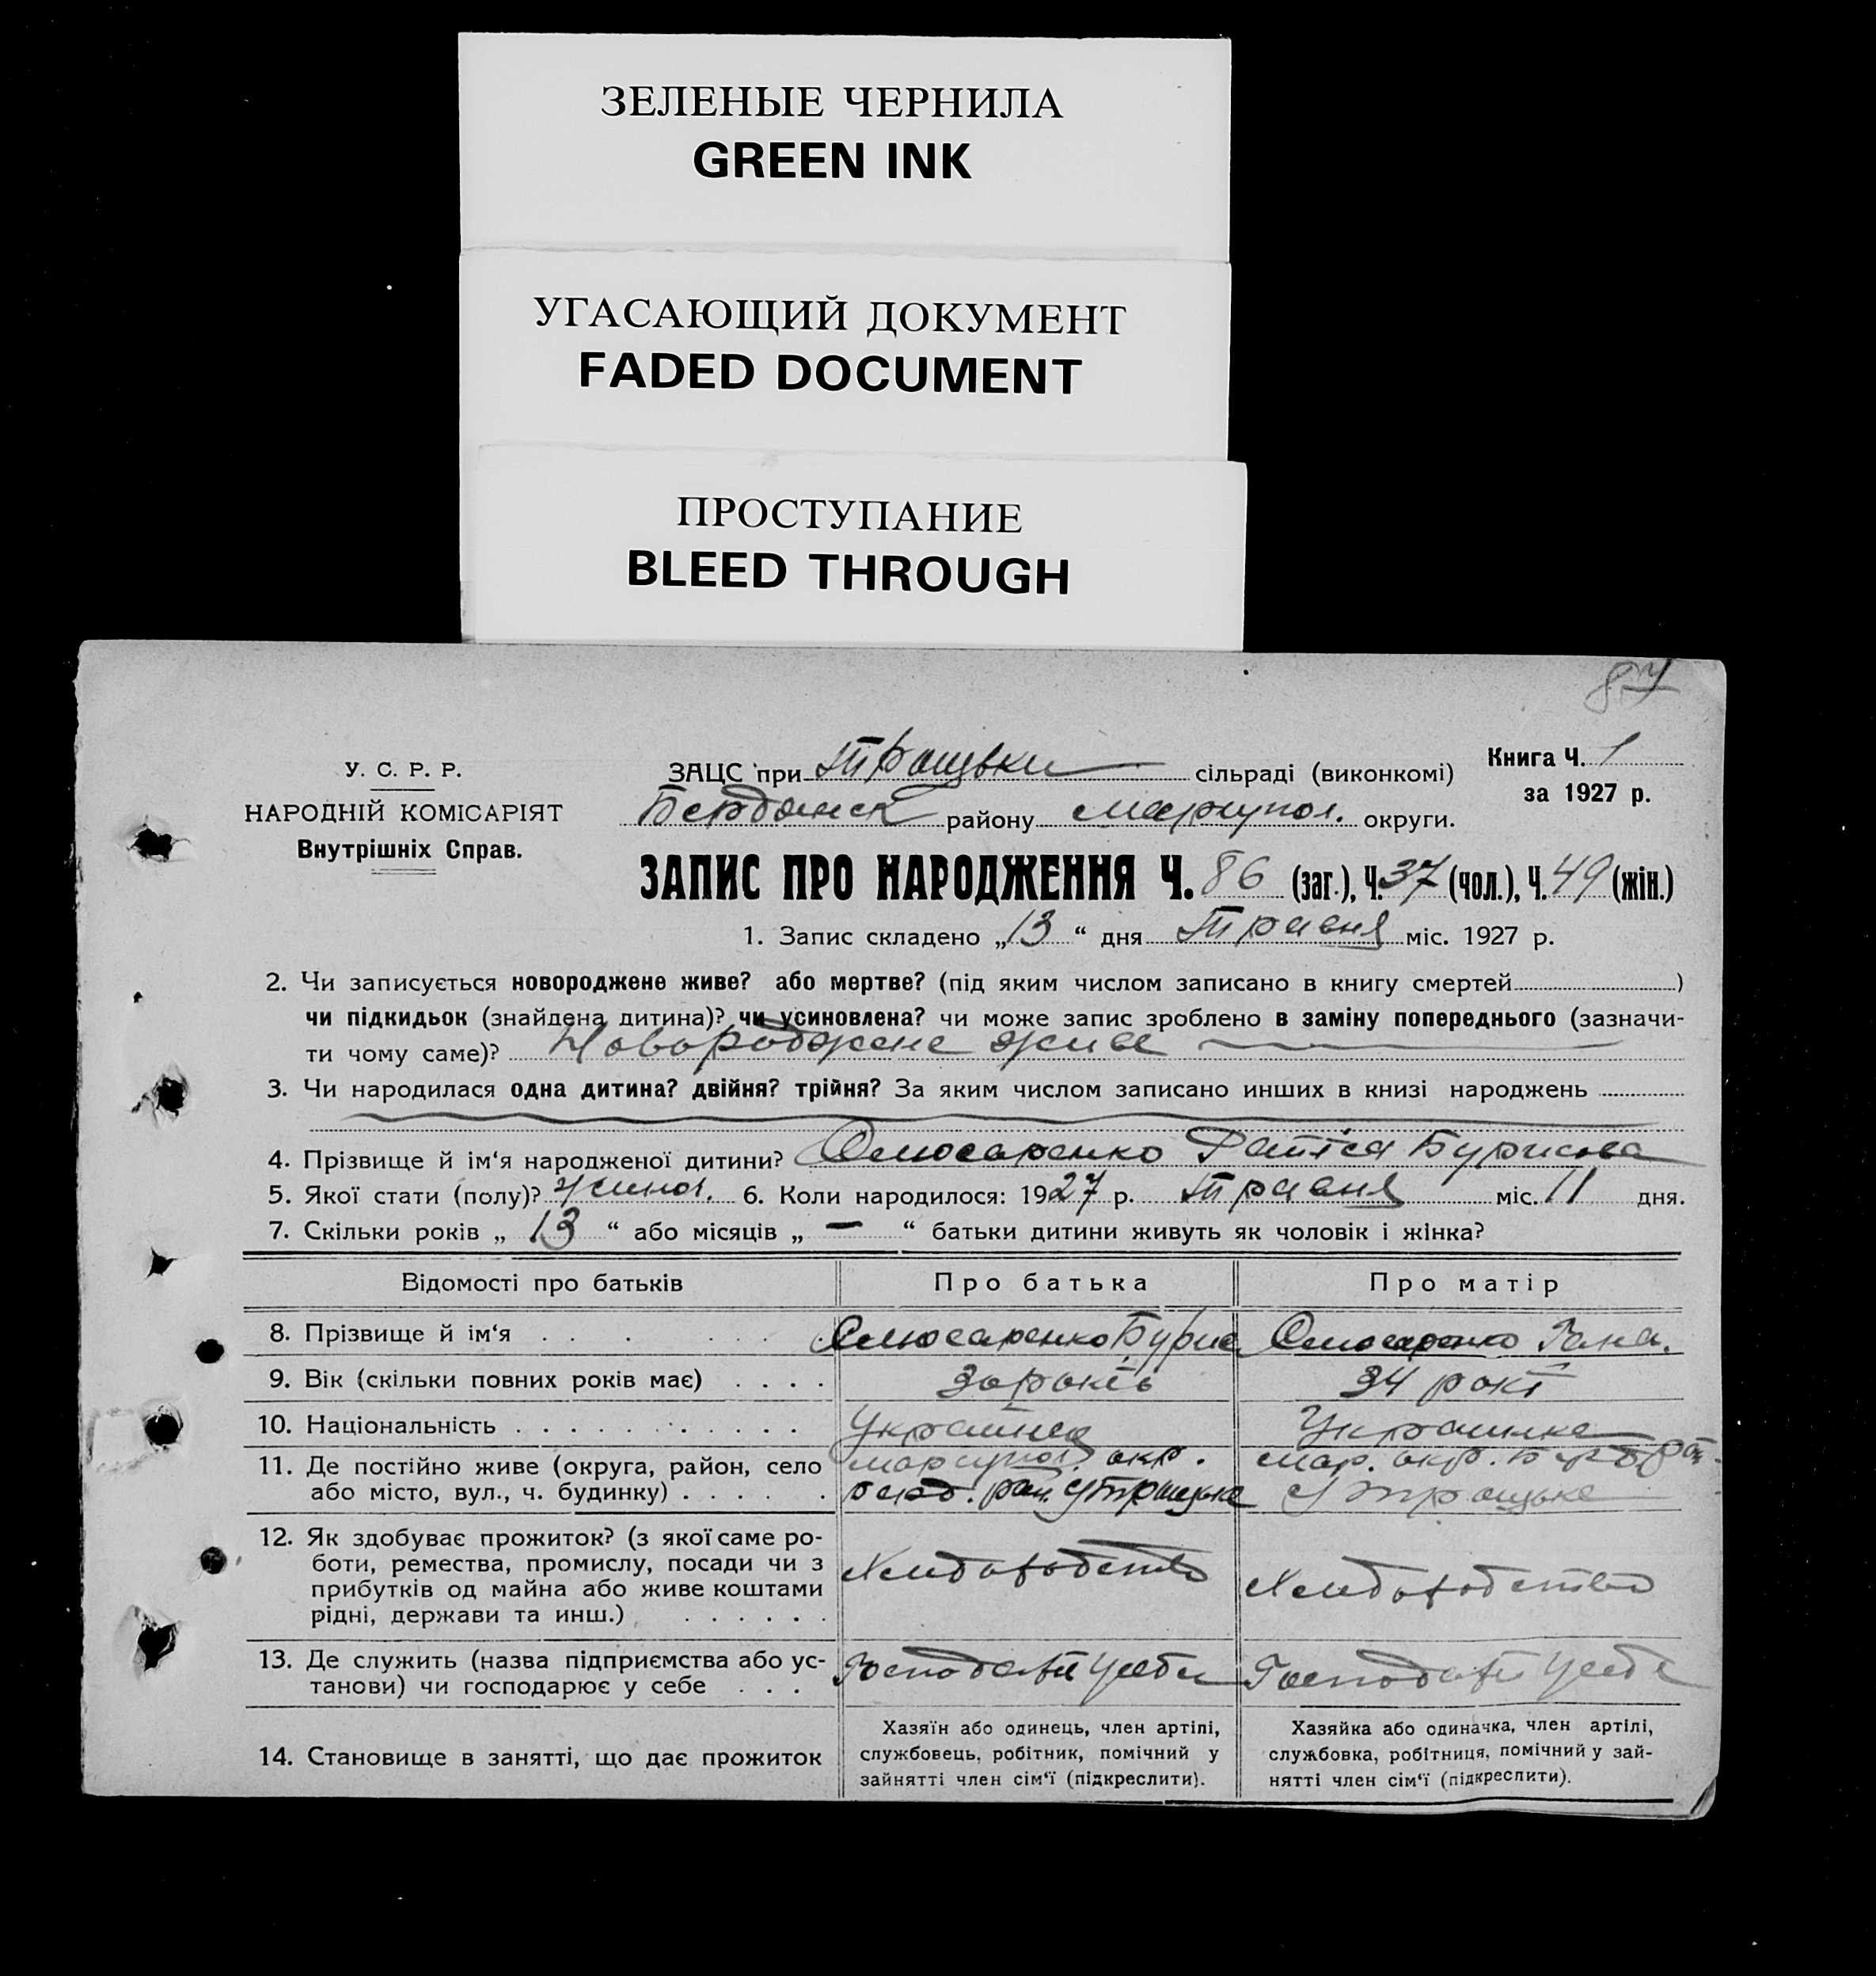 ЗЕЛЕНЫЕ ЧЕРНИЛА
GREEN INK
УГАСАЮЩИЙ ДОКУМЕНТ
FADED DOCUMENT
ПРОСТУПАНИЕ
BLEED THROUGH
87
У. С. Р. Р.
НАРОДНІЙ КОМІСАРІЯТ
Внутрішніх Справ.
ЗАЦС при сільраді (виконкомі)
Книга Ч. 1
за 1927 р.
Бердянск району Маріупол. округи.
ЗАПИС ПРО НАРОДЖЕННЯ Ч. 86 (заг.), Ч. 37 (чол.), Ч. 49 (жін.)
1. Запис складено „13“ дня Травня міс. 1927 р.
2. Чи записується новороджене живе? або мертве? (під яким числом записано в книгу смертей )
чи підкидьок (знайдена дитина)? чи усиновлена? чи може запис зроблено в заміну попереднього (зазначи-
ти чому саме)? Новороджене живе
3. Чи народилася одна дитина? двійня? трійня? За яким числом записано инших в книзі народжень
4. Прізвище й ім‘я народженої дитини? Слюсаренко Раїса Бурисова
5. Якої стати (полу)? жиноч. 6. Коли народилося: 1927 р. Травня міс. 11 дня.
7. Скільки років „ 13 “ або місяців „ — “ батьки дитини живуть як чоловік і жінка?
Відомості про батьків Про батька Про матір
8. Прізвище й ім‘я . . . . . . . Слюсаренко Бурис Слюсаренко Гана.
9. Вік (скільки повних років має) . . . . років 34 рокі
10. Національність . . . . . . . . . . . Українец Українка
11. Де постійно живе (округа, район, село
або місто, вул., ч. будинку) . . . . . .
Маріупол. окр.
Берд. рай.
Мар. окр.
12. Як здобуває прожиток? (з якої саме ро-
боти, ремества, промислу, посади чи з
прибутків од майна або живе коштами
рідні, держави та инш.) . . . . . .
Хлибороботство
Хлибороботство
13. Де служить (назва підприємства або ус-
танови) чи господарює у себе . . .
Господарює у себе
Господарює у себе
14. Становище в занятті, що дає прожиток
Хазяїн або одинець, член артілі,
службовець, робітник, помічний у
зайнятті член сім‘ї (підкреслити).
Хазяйка або одиначка, член артілі,
службовка, робітниця, помічний у зай-
нятті член сім‘ї (підкреслити).